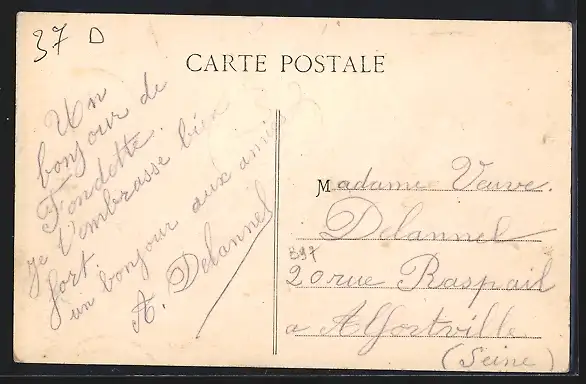 37 D
CARTE POSTALE
Un
bonjour de
Fondette.
je t'embrasse bien
fort.
un bonjour aux amies
A. Delannel
Madame Veuve.
Delannel
B97
20 rue Raspail
a Alfortville
(Seine)